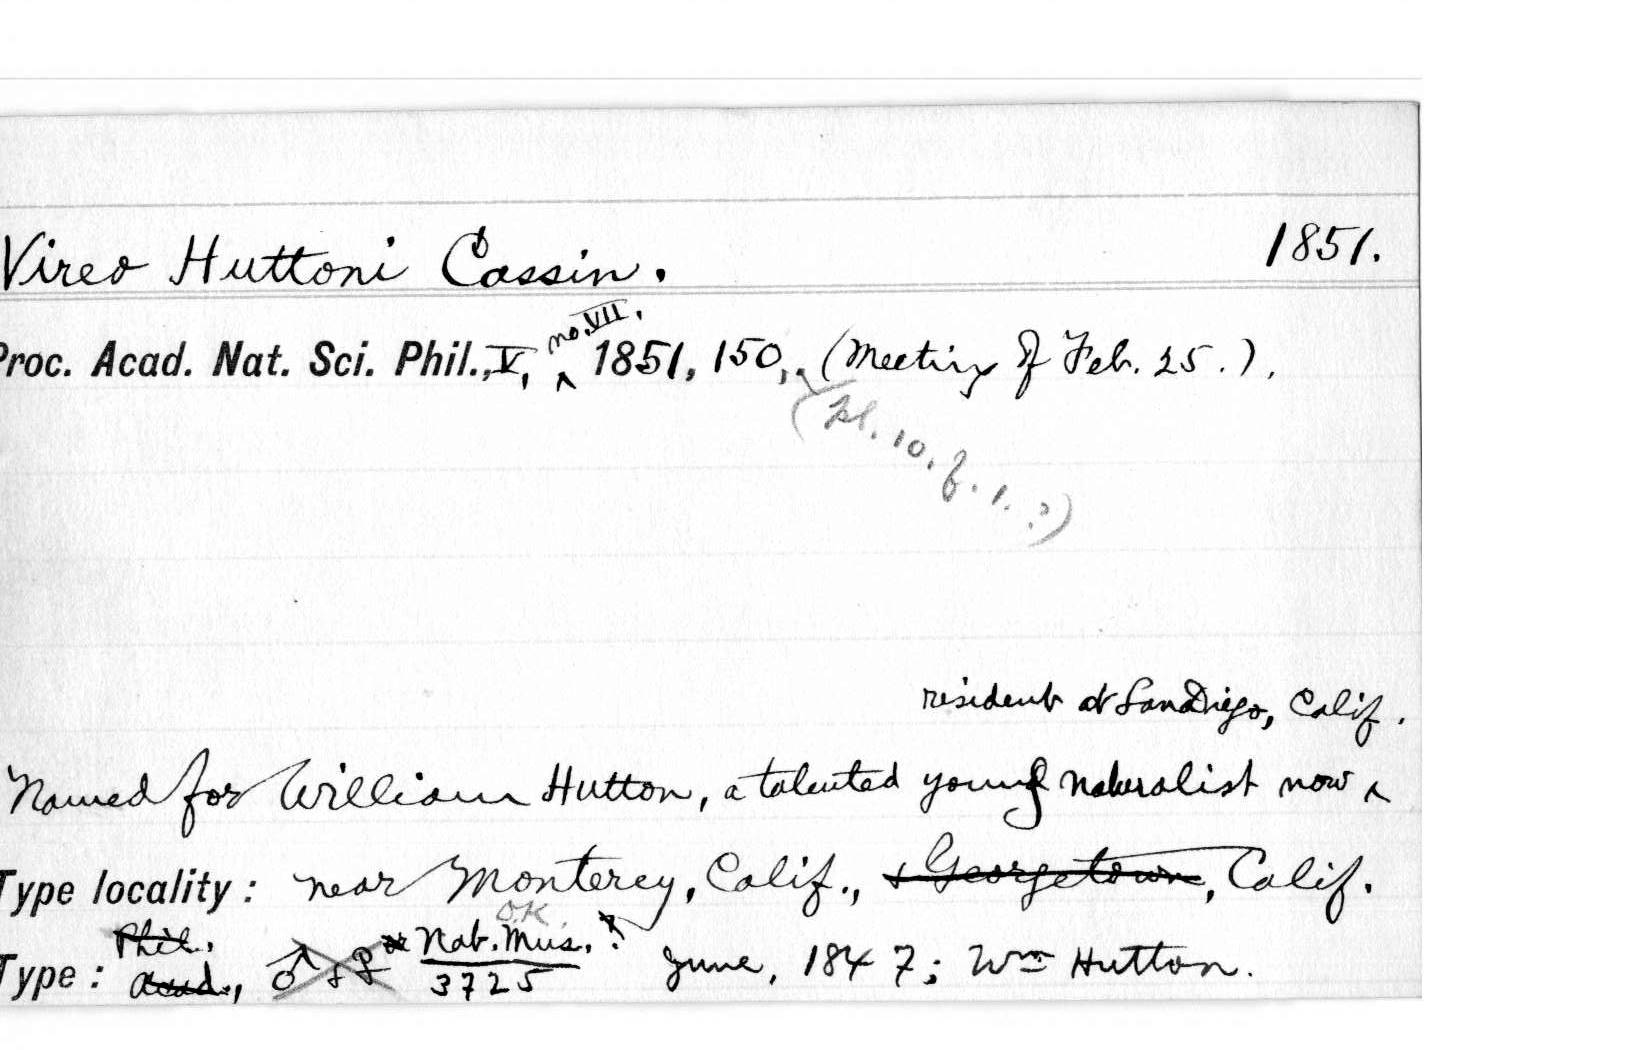 Vireo Huttoni Cassin. 1851.
no. VII.
Proc. Acad. Nat. Sci. Phil., V, ^ 1851, 150, (Meeting of Feb. 25.),
(Pl. 10. f. 1. ?)
resident at San Diego, Calif.
Named for William Hutton, a talented young naturalist now ^
Type locality: near Monterey, Calif., & Georgetown, Calif.
O.K.
Phil. Nat. Mus. ?
Type: Acad., ♂ & ♀ or 3725 June, 1847; Wm Hutton.